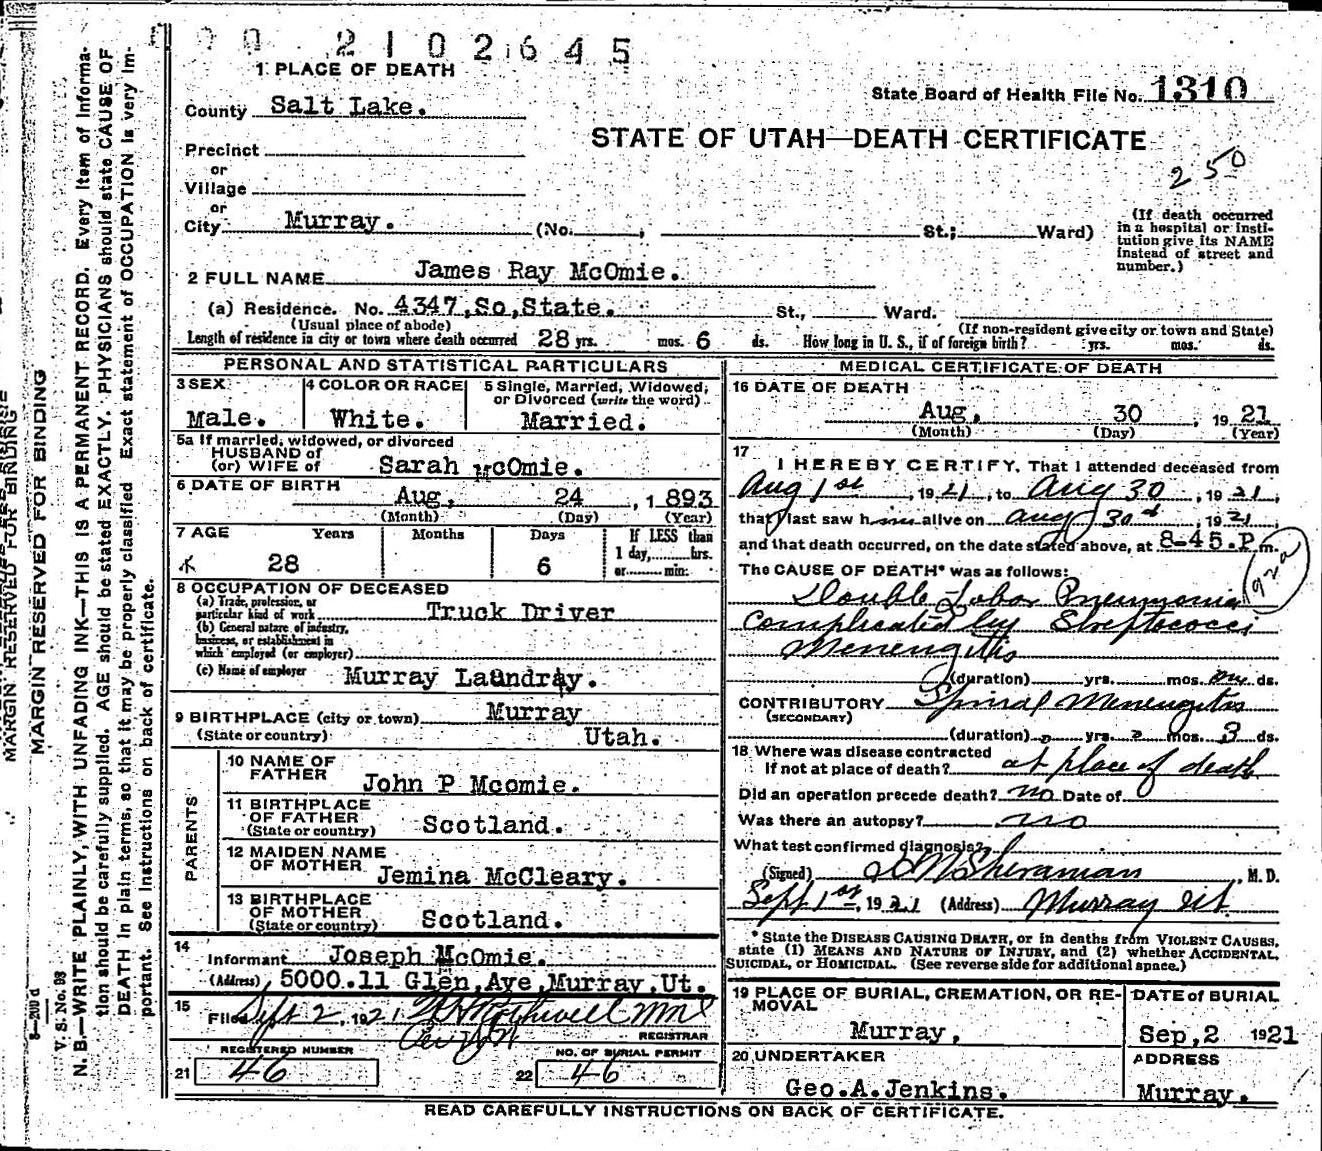 2102645
1 PLACE OF DEATH
County Salt Lake.
State Board of Health File No. 1310
STATE OF UTAH—DEATH CERTIFICATE
250
Precinct
or
Village
or
City Murray. (No. , St.; Ward)
(If death occurred
in a hospital or insti-
tution give its NAME
instead of street and
number.)
2 FULL NAME James Ray McOmie.
(a) Residence. No. 4347,So,State. St., Ward.
(Usual place of abode) (If non-resident give city or town and State)
Length of residence in city or town where death occurred 28 yrs. mos. 6 ds. How long in U. S., if of foreign birth? yrs. mos. ds.
PERSONAL AND STATISTICAL PARTICULARS
3 SEX
Male.
4 COLOR OR RACE
White.
5 Single, Married, Widowed,
or Divorced (write the word)
Married.
5a If married, widowed, or divorced
HUSBAND of
(or) WIFE of Sarah McOmie.
6 DATE OF BIRTH
Aug, 24 , 1 893
(Month) (Day) (Year)
7 AGE Years Months Days If LESS than
1 day, hrs.
28 6 or min.
8 OCCUPATION OF DECEASED
(a) Trade, profession, or
particular kind of work Truck Driver
(b) General nature of industry,
business, or establishment in
which employed (or employer)
(c) Name of employer Murray Laundray.
9 BIRTHPLACE (city or town) Murray
(State or country) Utah.
PARENTS
10 NAME OF
FATHER John P Mcomie.
11 BIRTHPLACE
OF FATHER
(State or country) Scotland.
12 MAIDEN NAME
OF MOTHER Jemina McCleary.
13 BIRTHPLACE
OF MOTHER
(State or country) Scotland.
14
Informant Joseph McOmie.
(Address) 5000.11 Glen,Ave,Murray,Ut.
15
Filed Sept 2, 1921
REGISTRAR
REGISTERED NUMBER
21 46
NO. OF BURIAL PERMIT
22 46
MEDICAL CERTIFICATE OF DEATH
16 DATE OF DEATH
Aug, 30 1921
(Month) (Day) (Year)
17
I HEREBY CERTIFY, That I attended deceased from
Aug 1st, 1921, to Aug 30, 1921,
that I last saw him alive on Aug 30th, 1921,
and that death occurred, on the date stated above, at 8-45.P m.
The CAUSE OF DEATH* was as follows:
92a
Double Lobar Pneumonia
Complicated by Streptococci
Menengitis
(duration) yrs. mos. ds.
CONTRIBUTORY Spinal Menengitis
(SECONDARY)
(duration) yrs. mos. 3 ds.
18 Where was disease contracted
if not at place of death? at place of death
Did an operation precede death? no Date of
Was there an autopsy? no
What test confirmed diagnosis?
(Signed) , M. D.
Sept 1st, 1921 (Address) Murray Ut
* State the DISEASE CAUSING DEATH, or in deaths from VIOLENT CAUSES,
state (1) MEANS AND NATURE OF INJURY, and (2) whether ACCIDENTAL,
SUICIDAL, or HOMICIDAL. (See reverse side for additional space.)
19 PLACE OF BURIAL, CREMATION, OR RE-
MOVAL
Murray,
DATE of BURIAL
Sep,2 1921
20 UNDERTAKER
Geo.A.Jenkins.
ADDRESS
Murray.
READ CAREFULLY INSTRUCTIONS ON BACK OF CERTIFICATE.
MARGIN RESERVED FOR BINDING
MARGIN RESERVED FOR BINDING
V. S. No. 98
N. B.—WRITE PLAINLY, WITH UNFADING INK—THIS IS A PERMANENT RECORD. Every item of informa-
tion should be carefully supplied. AGE should be stated EXACTLY. PHYSICIANS should state CAUSE OF
DEATH in plain terms, so that it may be properly classified. Exact statement of OCCUPATION is very im-
portant. See instructions on back of certificate.